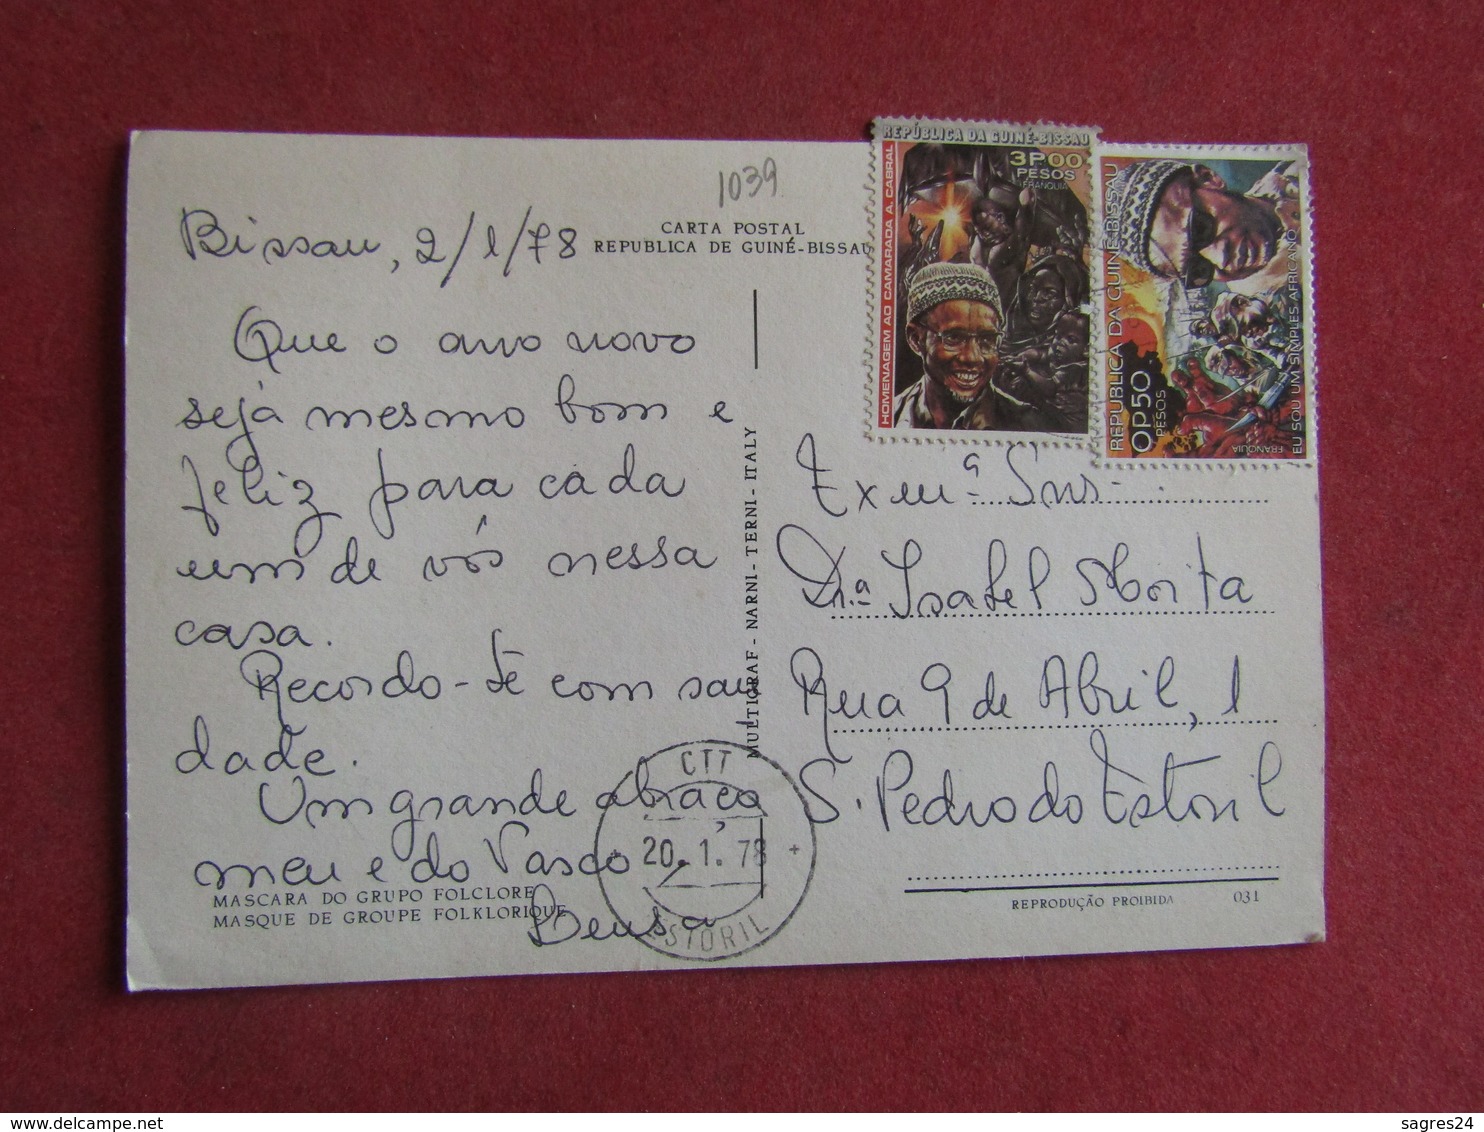 1039
CARTA POSTAL
REPUBLICA DE GUINÉ-BISSAU
Bissau, 2/1/78
Que o ano novo
seja mesmo bom e
feliz para cada
um de vós nessa
casa.
Recordo-te com sau
dade.
Um grande abraço
meu e do Vasco
Deusa
MASCARA DO GRUPO FOLCLORE
MASQUE DE GROUPE FOLKLORIQUE
MULTIGRAF - NARNI - TERNI - ITALY
CTT
20. 1. 78
ESTORIL
REPÚBLICA DA GUINÉ-BISSAU
3P00
PESOS
FRANQUIA
HOMENAGEM AO CAMARADA A. CABRAL
REPUBLICA DA GUINÉ-BISSAU
0P50
PESOS
EU SOU UM SIMPLES AFRICANO
FRANQUIA
Exmª Snrs.
Dr.ª Isabel
Rua 9 de Abril, 1
S. Pedro do Estoril
REPRODUÇÃO PROIBIDA 031
sagres24